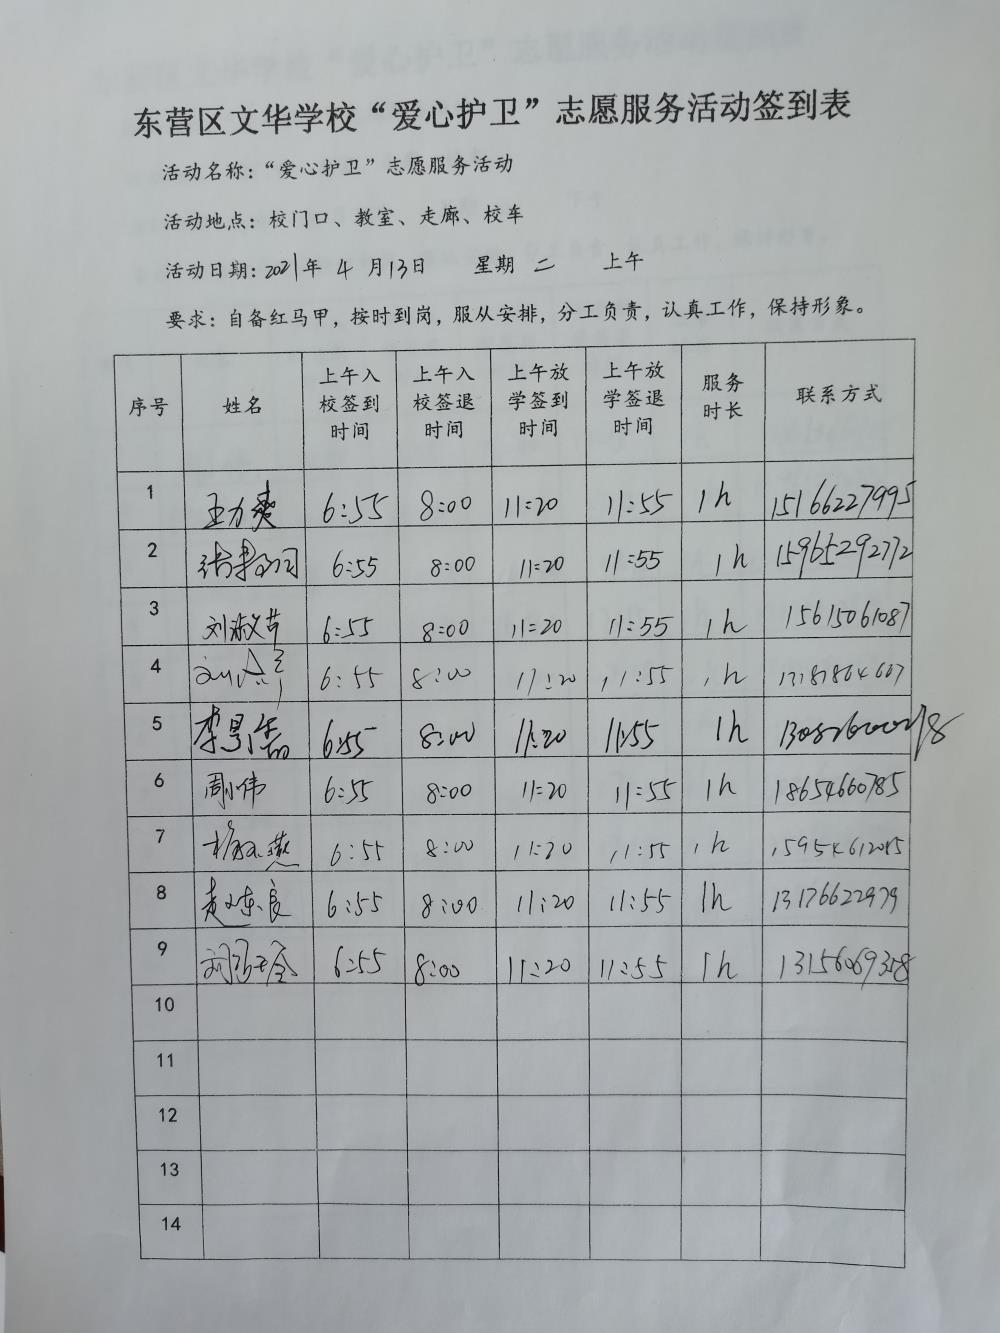 东营区文华学校“爱心护卫”志愿服务活动签到表
活动名称：“爱心护卫”志愿服务活动
活动地点：校门口、教室、走廊、校车
活动日期：2021年 4 月13日 星期 二 上午
要求：自备红马甲，按时到岗，服从安排，分工负责，认真工作，保持形象。
序号 姓名 上午入校签到时间 上午入校签退时间 上午放学签到时间 上午放学签退时间 服务时长 联系方式
1 王力爽 6:55 8:00 11:20 11:55 1h 15166227995
2 6:55 8:00 11:20 11:55 1h 15965292772
3 刘淑芹 6:55 8:00 11:20 11:55 1h 15615061087
4 6:55 8:00 11:20 11:55 1h
5 李景浩 6:55 8:00 11:20 11:55 1h
6 周小伟 6:55 8:00 11:20 11:55 1h 18654660785
7 6:55 8:00 11:20 11:55 1h
8 6:55 8:00 11:20 11:55 1h 13176622979
9 6:55 8:00 11:20 11:55 1h 13156069358
10
11
12
13
14